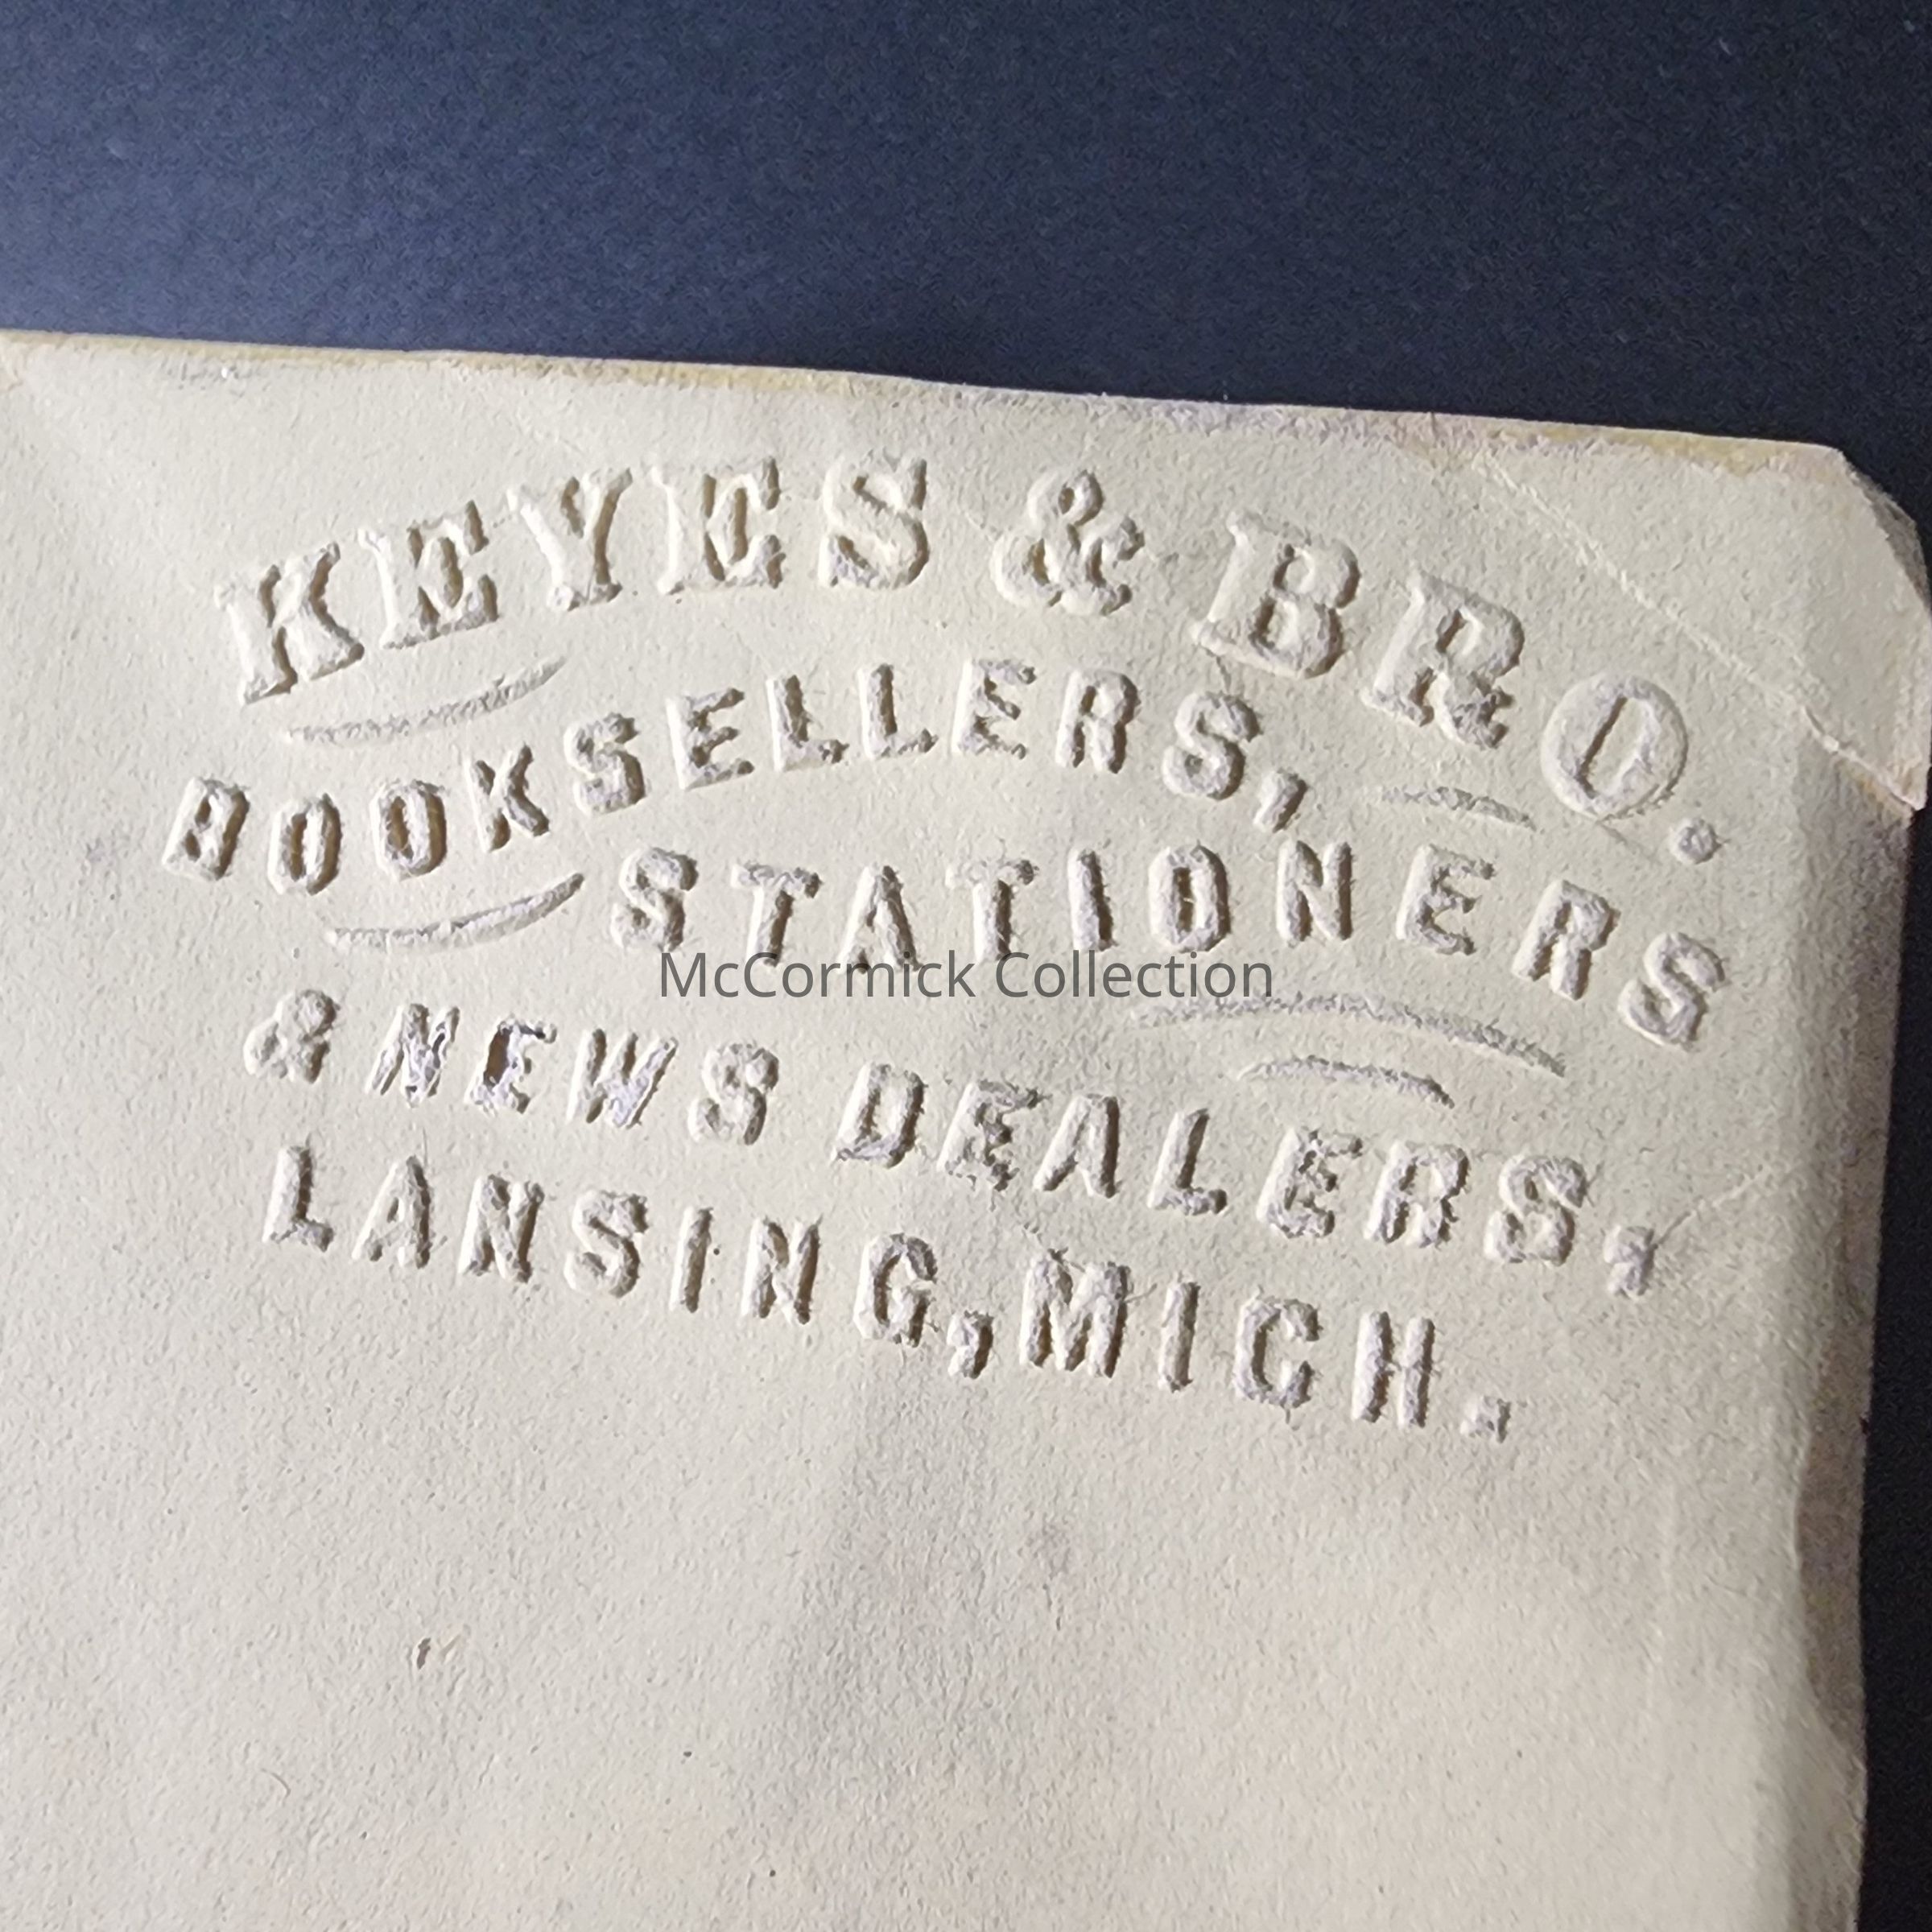 KEYES & BRO.
BOOKSELLERS,
STATIONERS
McCormick Collection
& NEWS DEALERS,
LANSING, MICH.